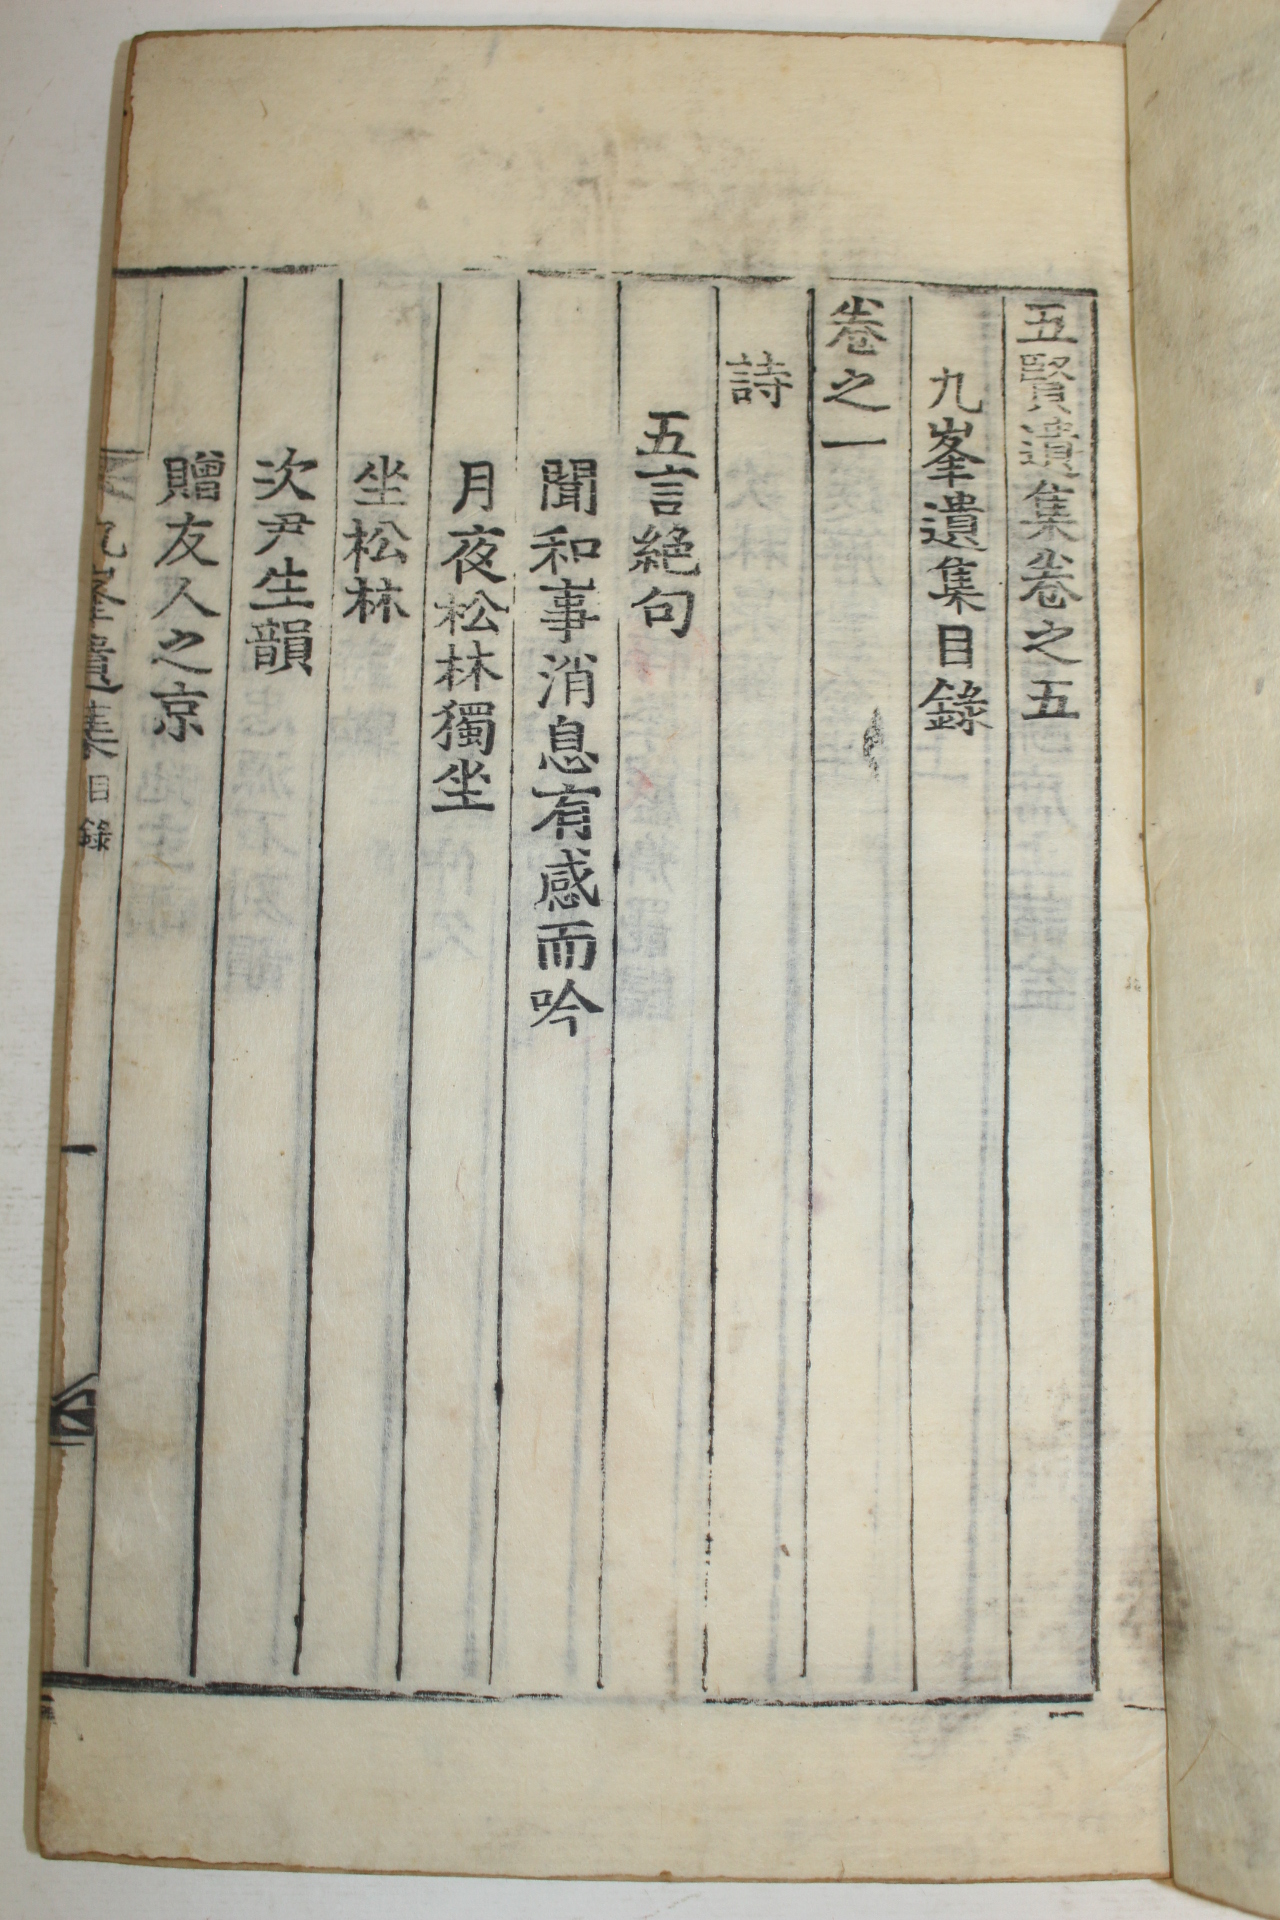 五賢遺集卷之五
九峯遺集目錄
卷之一
詩
五言絕句
聞和事消息有感而吟
月夜松林獨坐
坐松林
次尹生韻
贈友人之京
九峯遺集 目錄 一